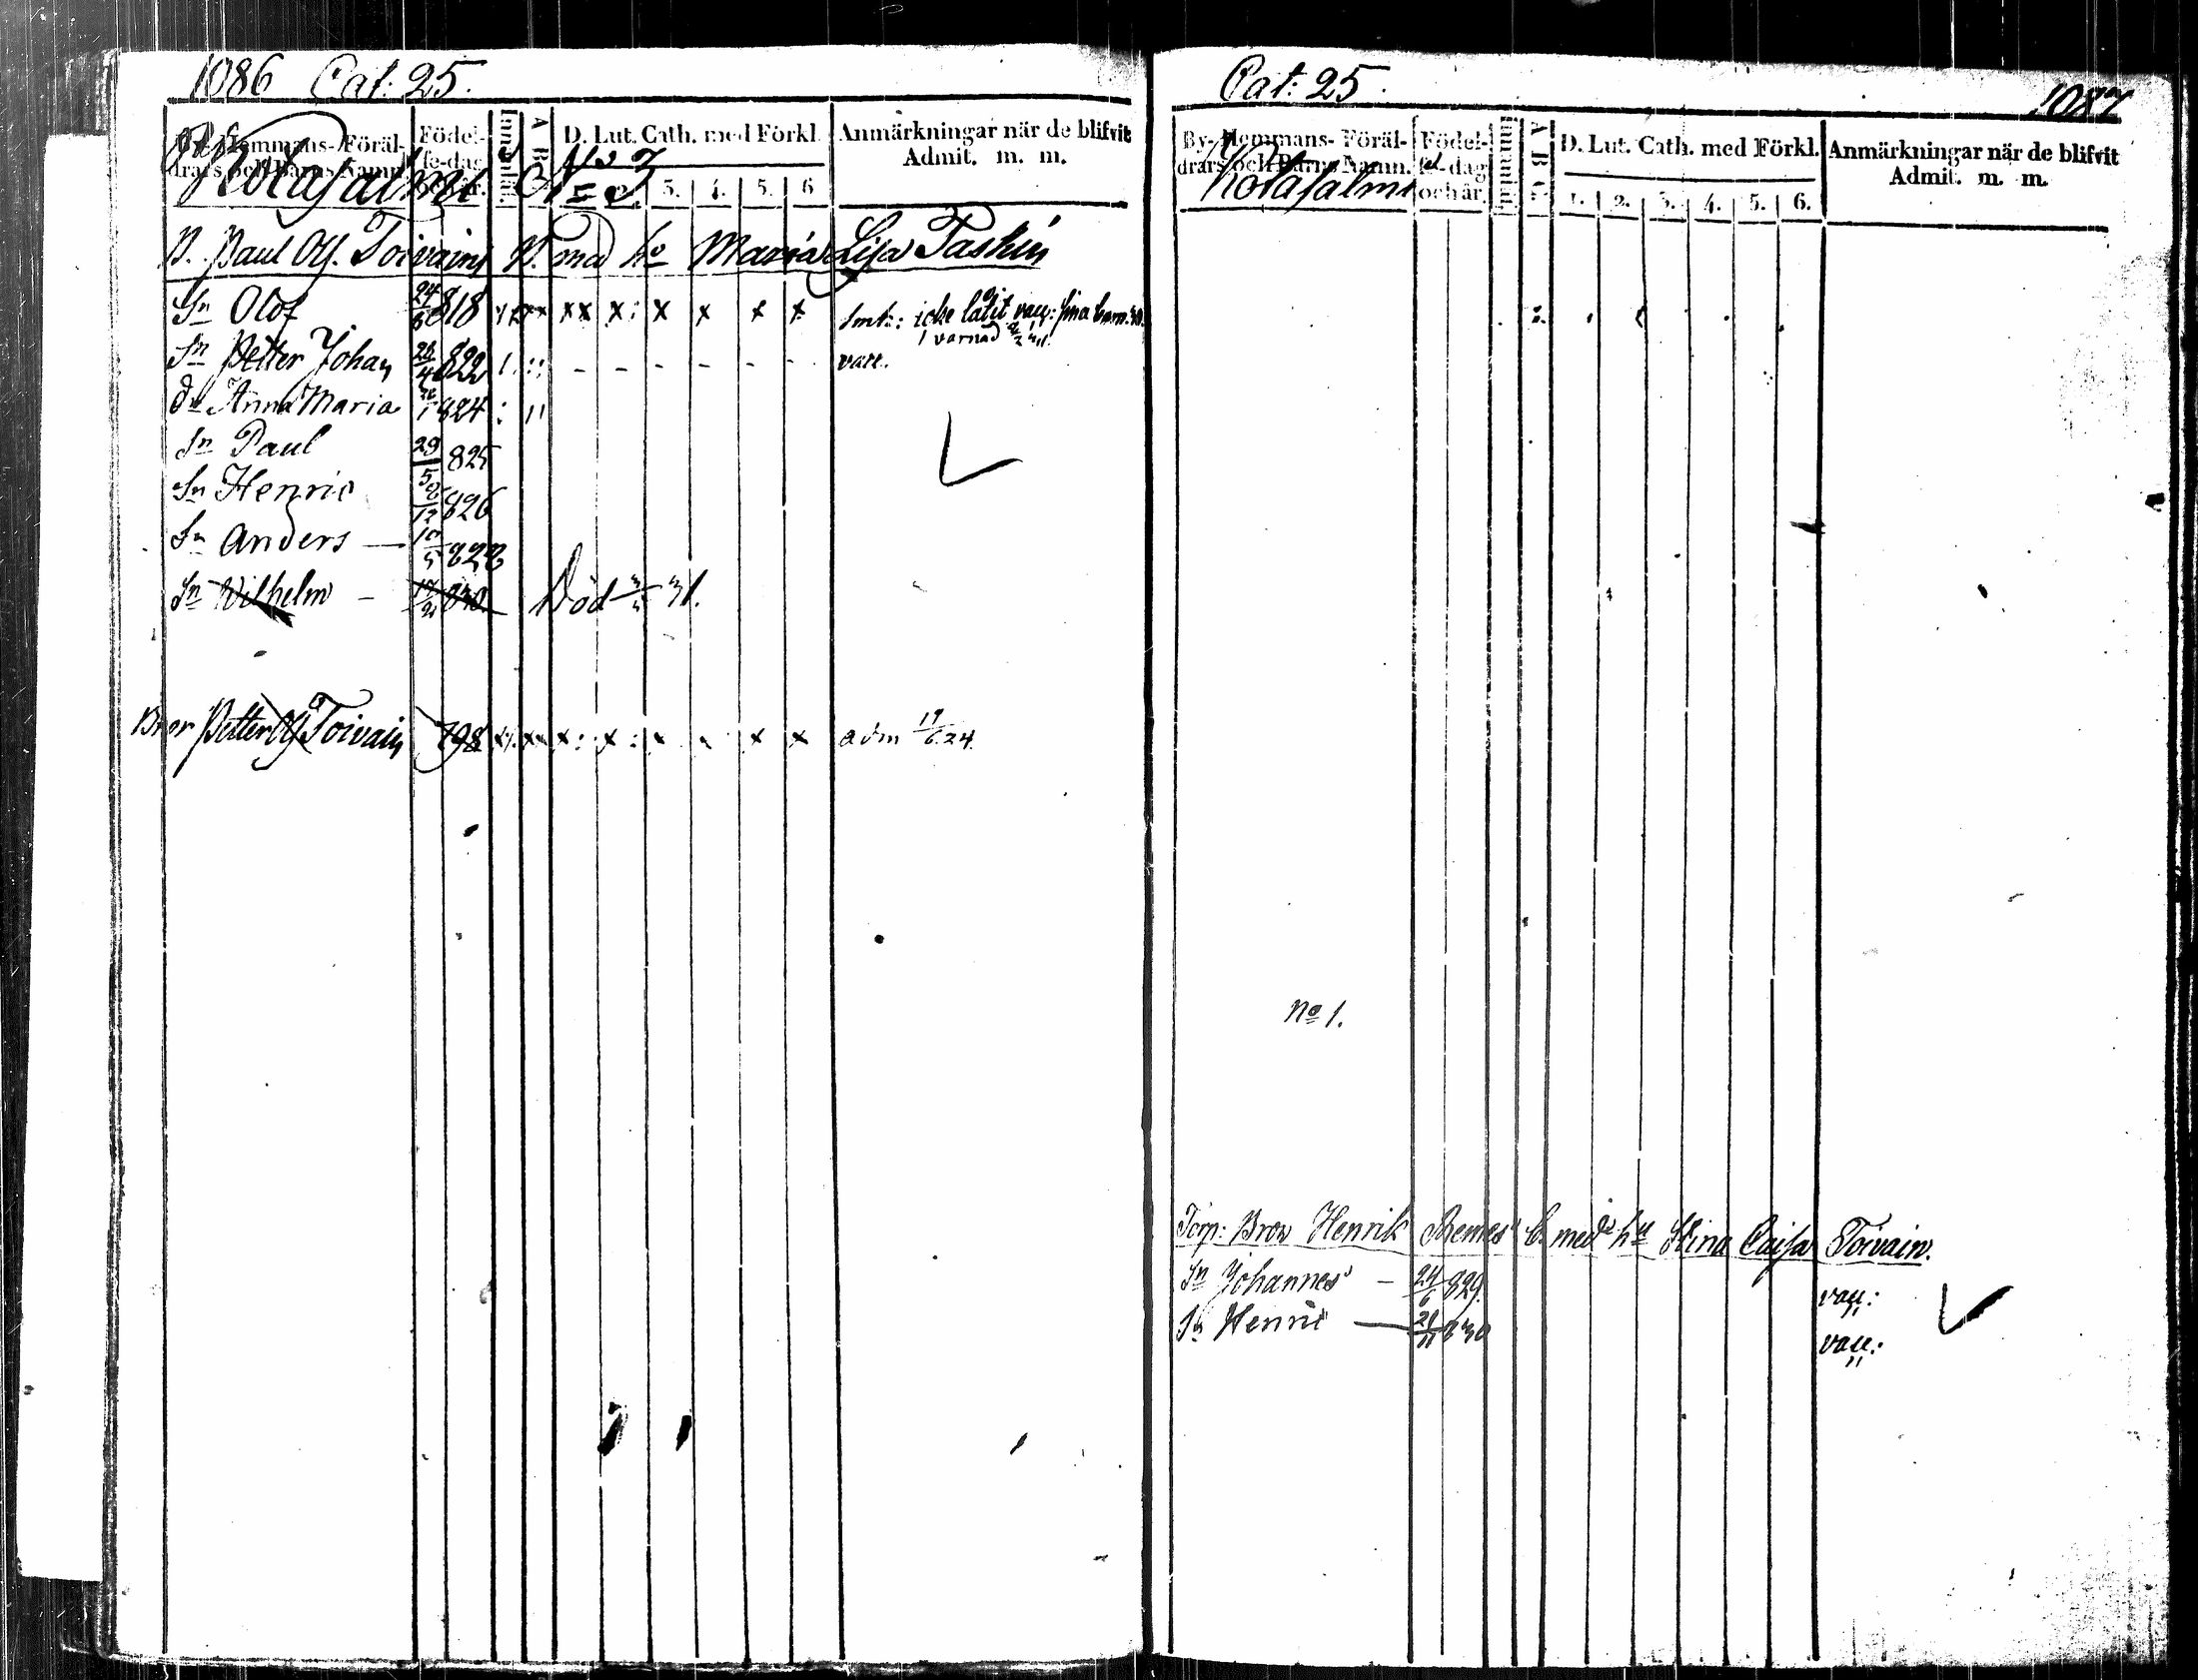 1086 Cat: 25.
By- Hemmans- Föräl-
drars och Barns Namn.
Födel-
se-dag
och år.
Innanläs.
A B C
D. Lut. Cath. med Förkl.
3. 4. 5. 6
Anmärkningar när de blifvit
Admit. m. m.
Kotasalmi No 3
B. Paul Ols. Toivain B. med hu Maria Lisa Taskin
Sn Olof 24/6 818 x x x x x x
smk: icke låtit vacc: sina barn
1 varnad
Sn Petter Johan 26/4 822 - - - - - - vacc.
dr Anna Maria 26/1 824
Sn Paul 29/5 825
Sn Henric 12 826
Sn Anders — 10/5 828
Sn Wilhelm – 830 Död 31.
Bror Petter Ols Toivain 798 x x x x x x adm 17/6 24.
Cat: 25. 1087
By- Hemmans- Föräl-
drars och Barns Namn.
Födel-
se-dag
och år.
Innanläs.
A B C
D. Lut. Cath. med Förkl.
1. 2. 3. 4. 5. 6.
Anmärkningar när de blifvit
Admit. m. m.
Kotasalmi
No 1.
Torp: Bror Henrik Remes B. med hu Stina Caisa Toivain.
Sn Johannes – 24/6 829. vacc:
Sn Henric — 21/11 830 vacc: